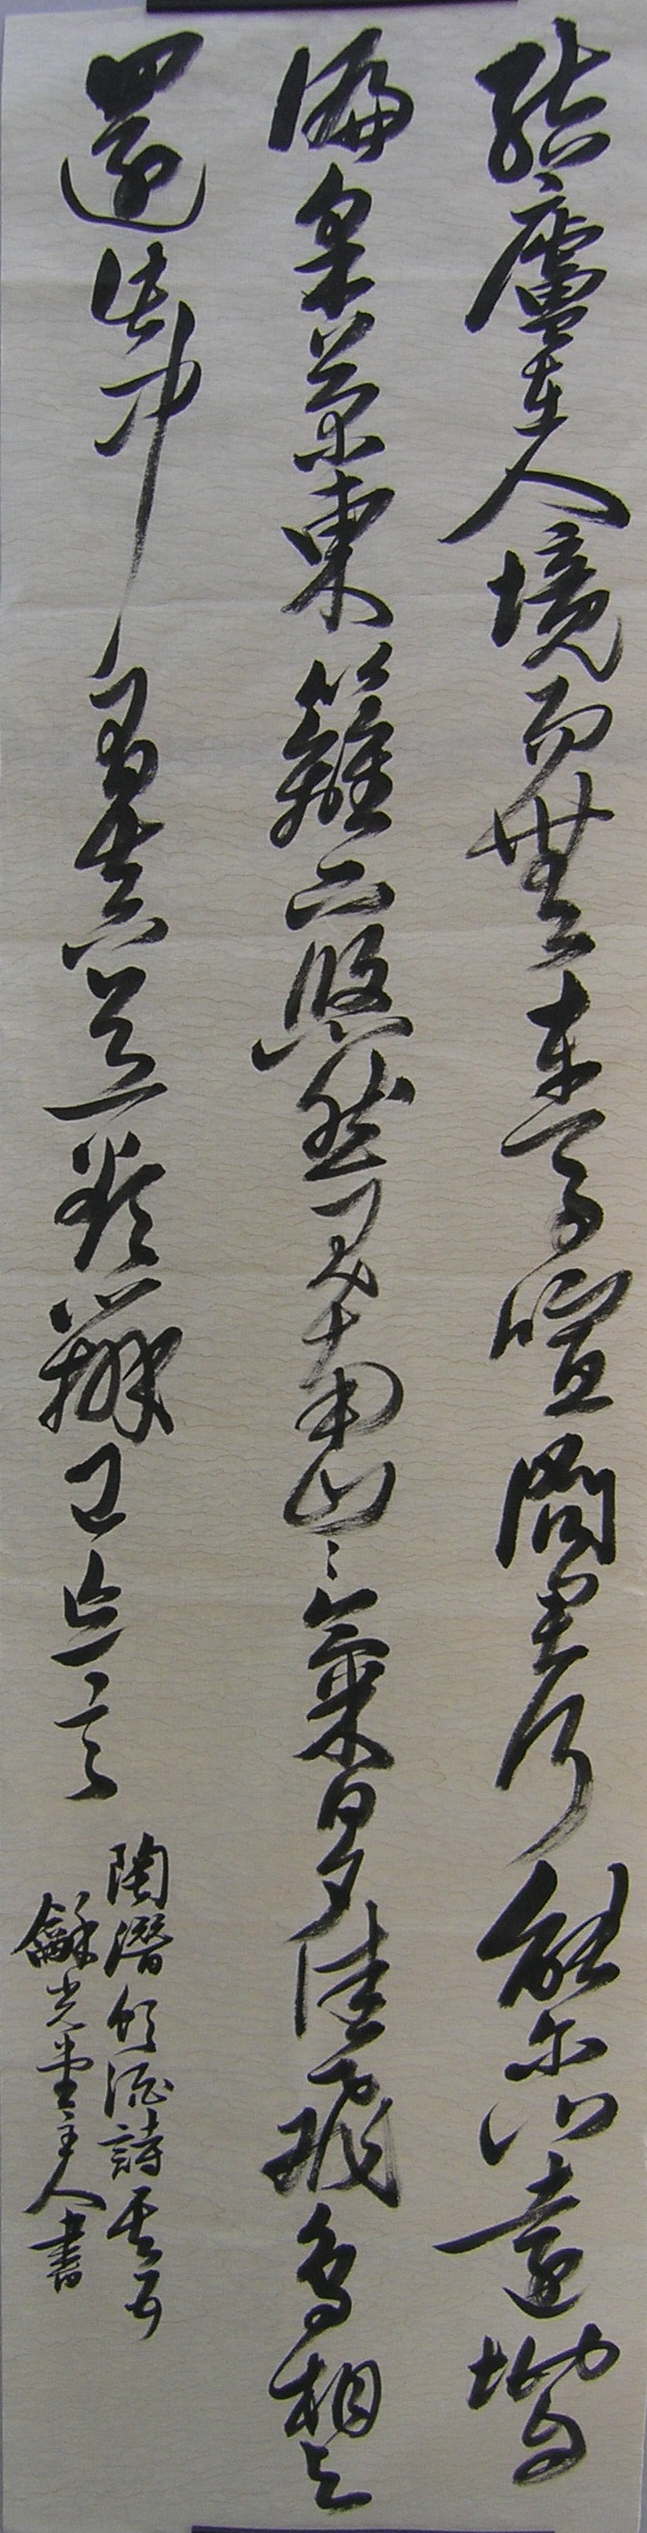 結廬在人境而無車馬喧問君何能爾心遠地
偏采菊東籬下悠然見南山山氣日夕佳飛鳥相與
還此中有真意欲辨已忘言
陶潛飲酒詩其五
龢光堂主人書